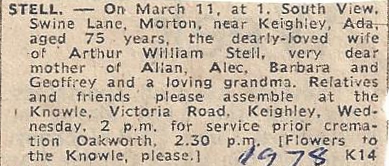 STELL. — On March 11, at 1, South View,
Swine Lane, Morton, near Keighley, Ada,
aged 75 years, the dearly-loved wife
of Arthur William Stell, very dear
mother of Allan, Alec, Barbara and
Geoffrey and a loving grandma. Relatives
and friends please assemble at the
Knowle, Victoria Road, Keighley, Wed-
nesday, 2 p.m. for service prior crema-
tion Oakworth, 2.30 p.m. [Flowers to
the Knowle, please.] 1978 K14